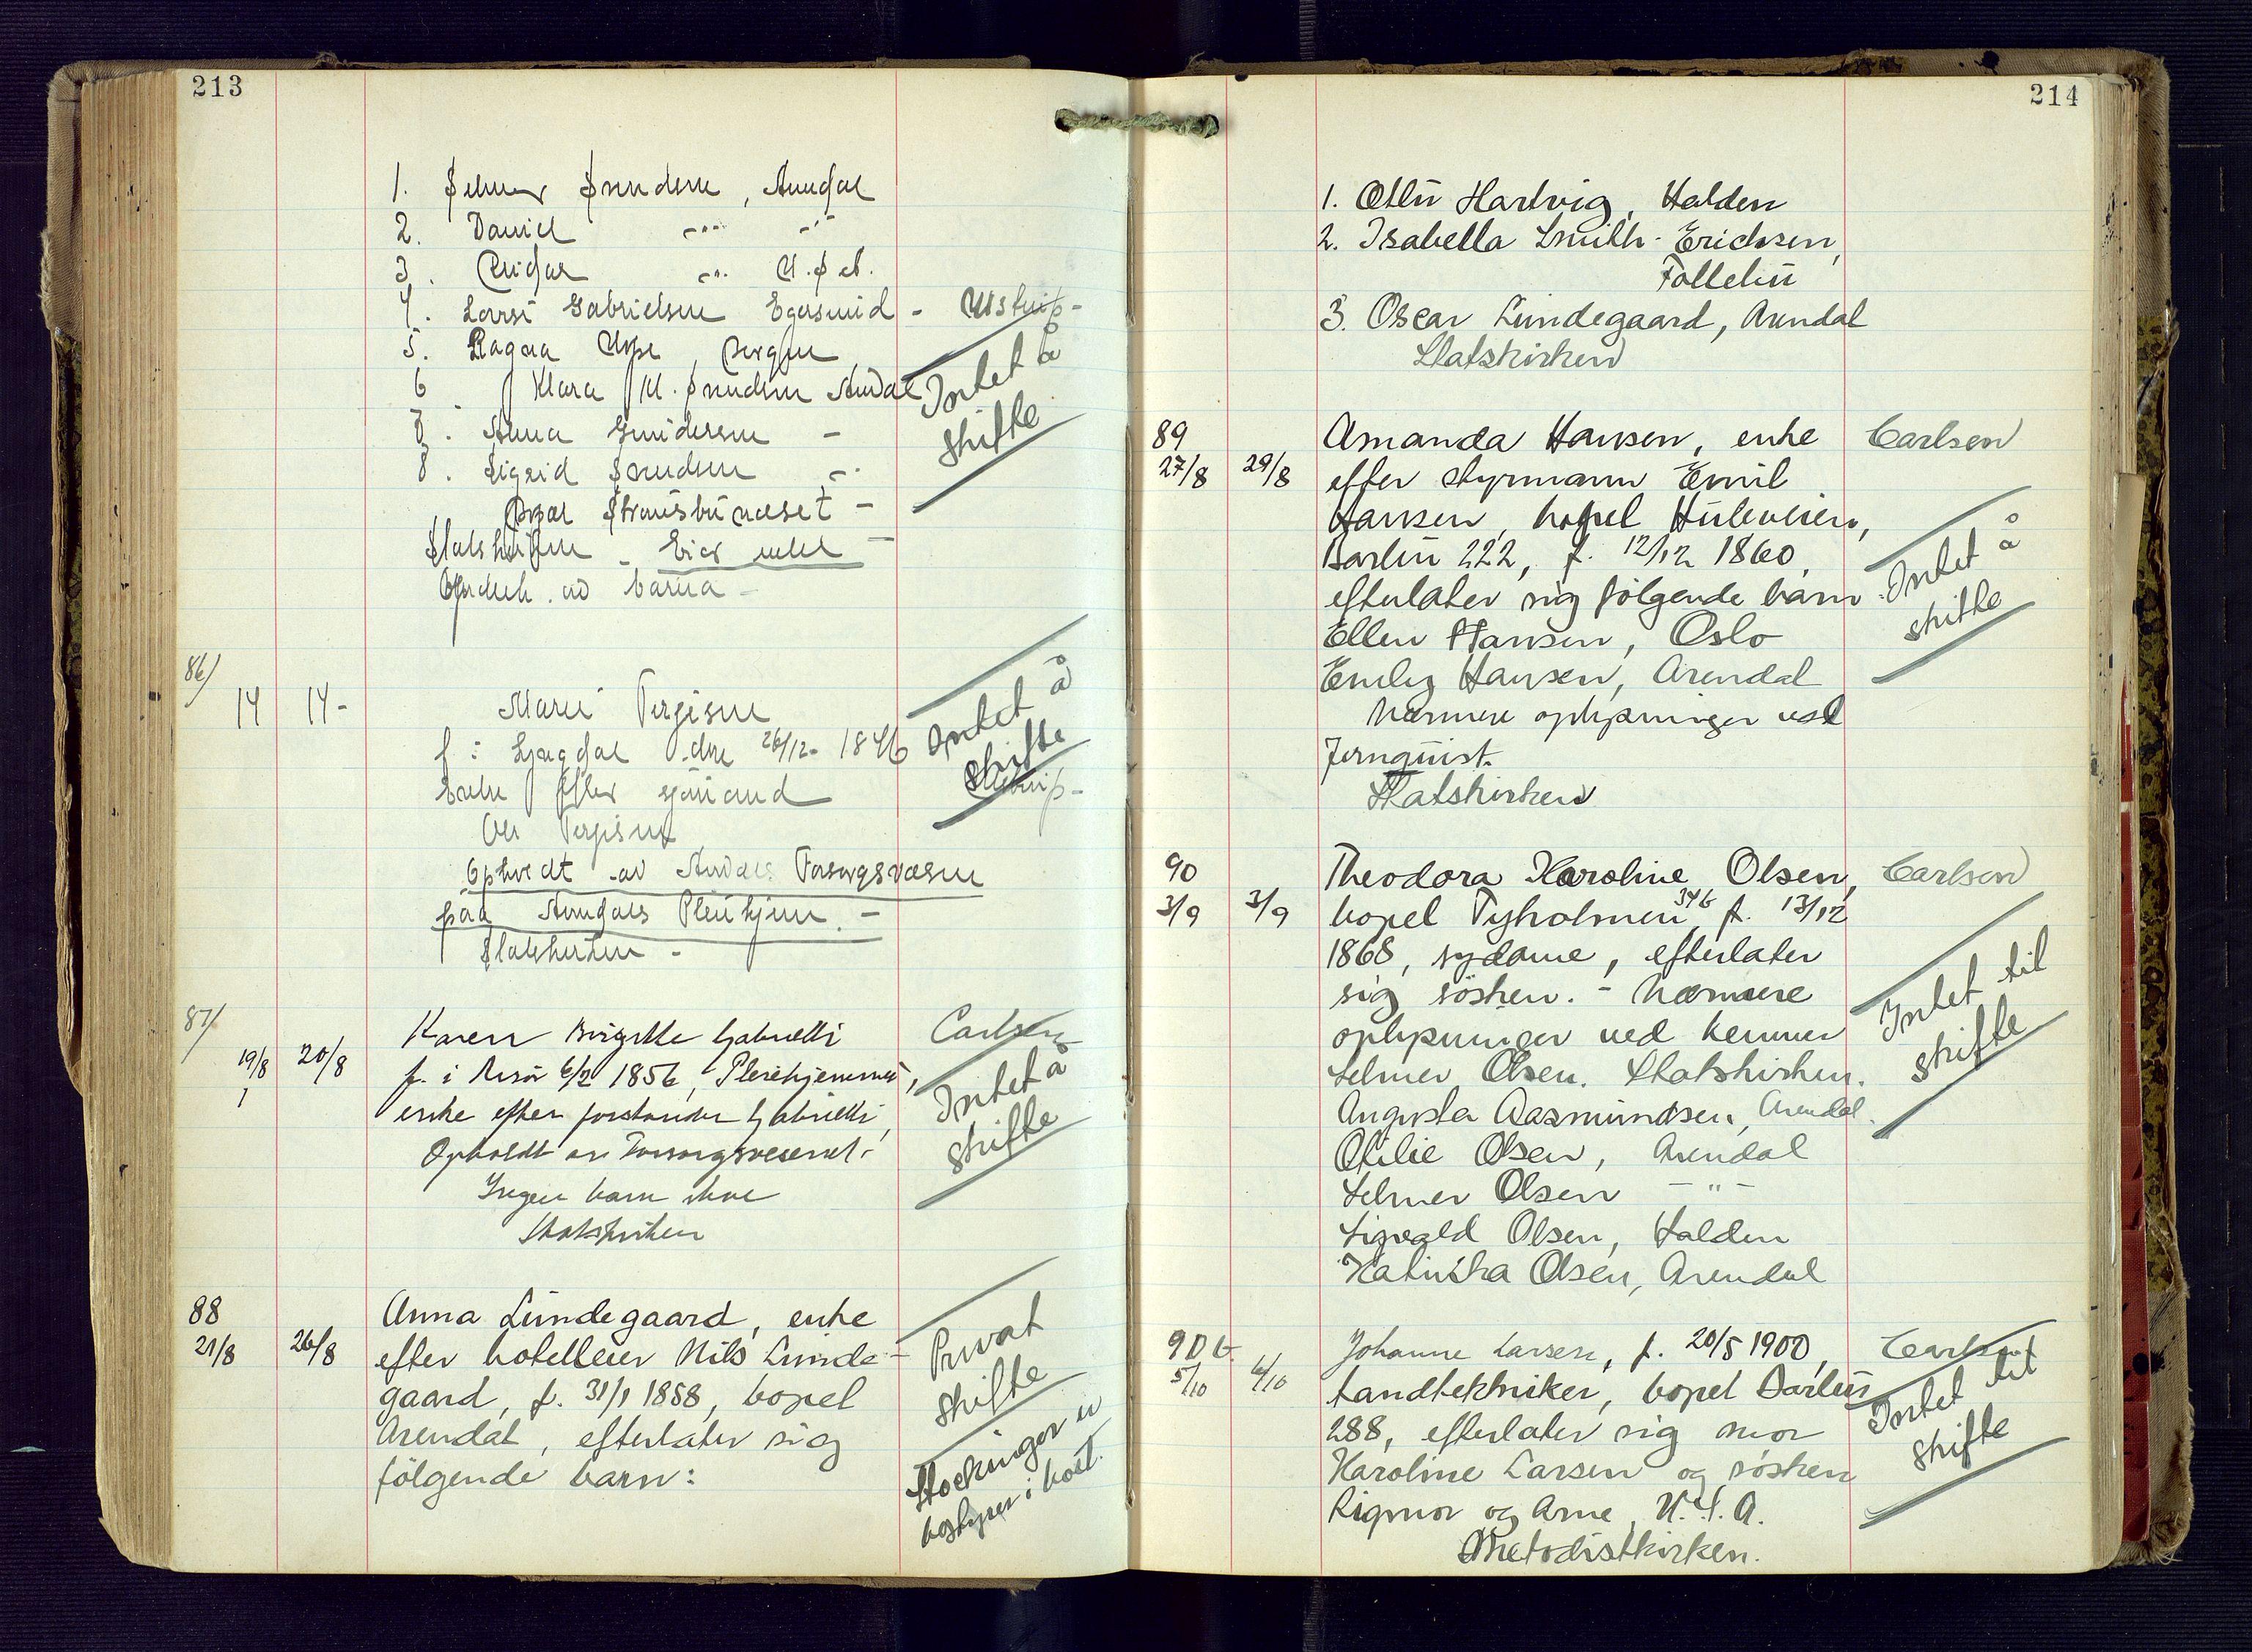 213
1. Selmer Knudsen, Arendal
2. Daniel -"- -"-
3. Reidar -"- U.S.A.
4. Lovise Gabrielsen Egersund - Ustrup -
5. Ragna, Bergen
6 Klara M. Knudsen Arendal
7. Anna Gundersen -
8. Sigrid Knudsen -"-
Intet å
skifte
Bopæl Strømsbuneset -
Statskirken - Eier intet -
av barna -
86/
14 14 -
Marie Terjesen
f. i 26/12 - 1846
Enke efter sjømand
Ole Terjesen
Ophold av Arendals Forsorgsvæsen
paa Arendals Pleiehjem. -
Statskirken -
Intet å
skifte
Ustrup -
87/
19/8 20/8
Karen Birgitte Gabrielli
f. i Risør 6/2 1856, Pleiehjemmet,
enke efter forstander Gabrielli,
Opholdt av Forsorgsvesenet.
Ingen barn
Statskirken
Carlsen
Intet å
skifte
88
21/8 26/8
Anna Lundegaard, enke
efter hotelleier Nils Lunde-
gaard, f. 31/1 1858, bopel
Arendal, efterlater sig
følgende barn:
Privat
skifte
Stockinger
bostyrer i boet.
214
1. Otto Hartvig, Halden
2. Isabella Smith-Erichsen,
3. Oscar Lundegaard, Arendal
Statskirken
89
27/8 29/8
Amanda Hansen, enke
efter styrmann Emil
Hansen, bopel Huleveien,
Barbu 222, f. 12/12 1860,
efterlater sig følgende barn
Ellen Hansen, Oslo
Emley Hansen, Arendal
Nærmere oplysninger ved
Jernquist.
Statskirken
Carlsen
Intet å
skifte
90
3/9 3/9
Theodora Karoline Olsen,
bopel Tyholmen 346 f. 13/12
1868, sydame, efterlater
sig søsken. - Nærmere
oplysninger ved kemner
Selmer Olsen. Statskirken.
Augusta Aasmundsen, Arendal.
Otilie Olsen, Arendal
Selmer Olsen -"-
Sigvald Olsen, Halden
Katinka Olsen, Arendal
Carlsen
Intet til
skifte
90 b
5/10 6/10
Johanne Larsen, f. 20/5 1900,
tandtekniker, bopel Barbu
288, efterlater sig mor
Karoline Larsen og søsken
Rigmor og Arne, U.S.A.
Metodistkirken.
Carlsen
Intet til
skifte